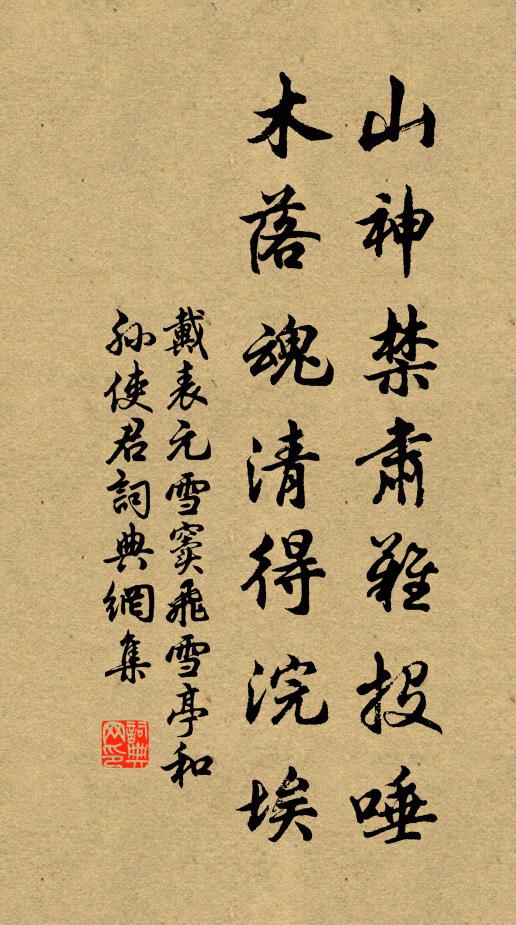 山神禁肅難投唾
木落魂清得浣埃
戴表元雪竇飛雪亭和
孫使君詞典網集
詞典網印